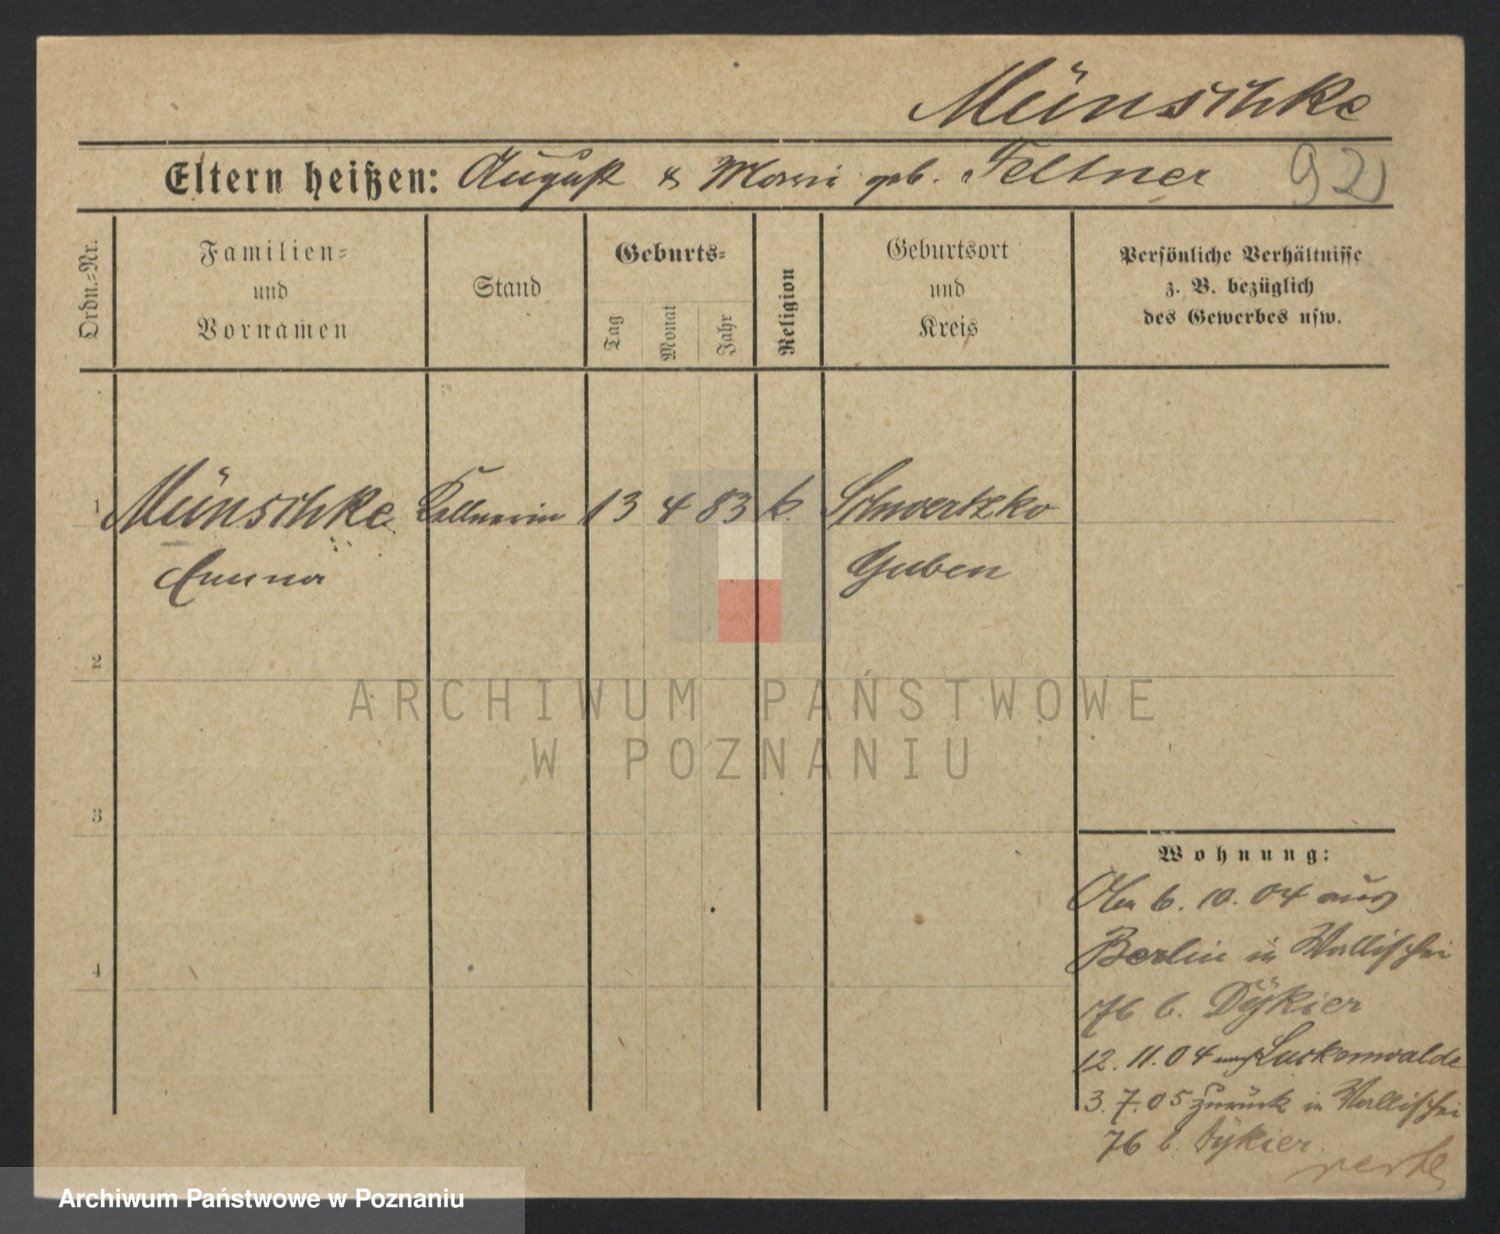 Münschke
Eltern heißen: August & Marie geb. Feltner
92
Ordn.-Nr.
Familien-
und
Vornamen
Stand
Geburts-
Tag
Monat
Jahr
Religion
Geburtsort
und
Kreis
Persönliche Verhältnisse
z. B. bezüglich
des Gewerbes usw.
1 Münschke Kellnerin 13 4 83 Schwertzko
Emma Guben
2
3
4
ARCHIWUM PAŃSTWOWE
W POZNANIU
Wohnung:
6. 10. 04 aus
Berlin in Wallischei
76 b. Dÿkier
12. 11. 04 nach Luckenwalde
3. 7. 05 zurück in Wallischei
76 b. Dÿkier
verte
Archiwum Państwowe w Poznaniu